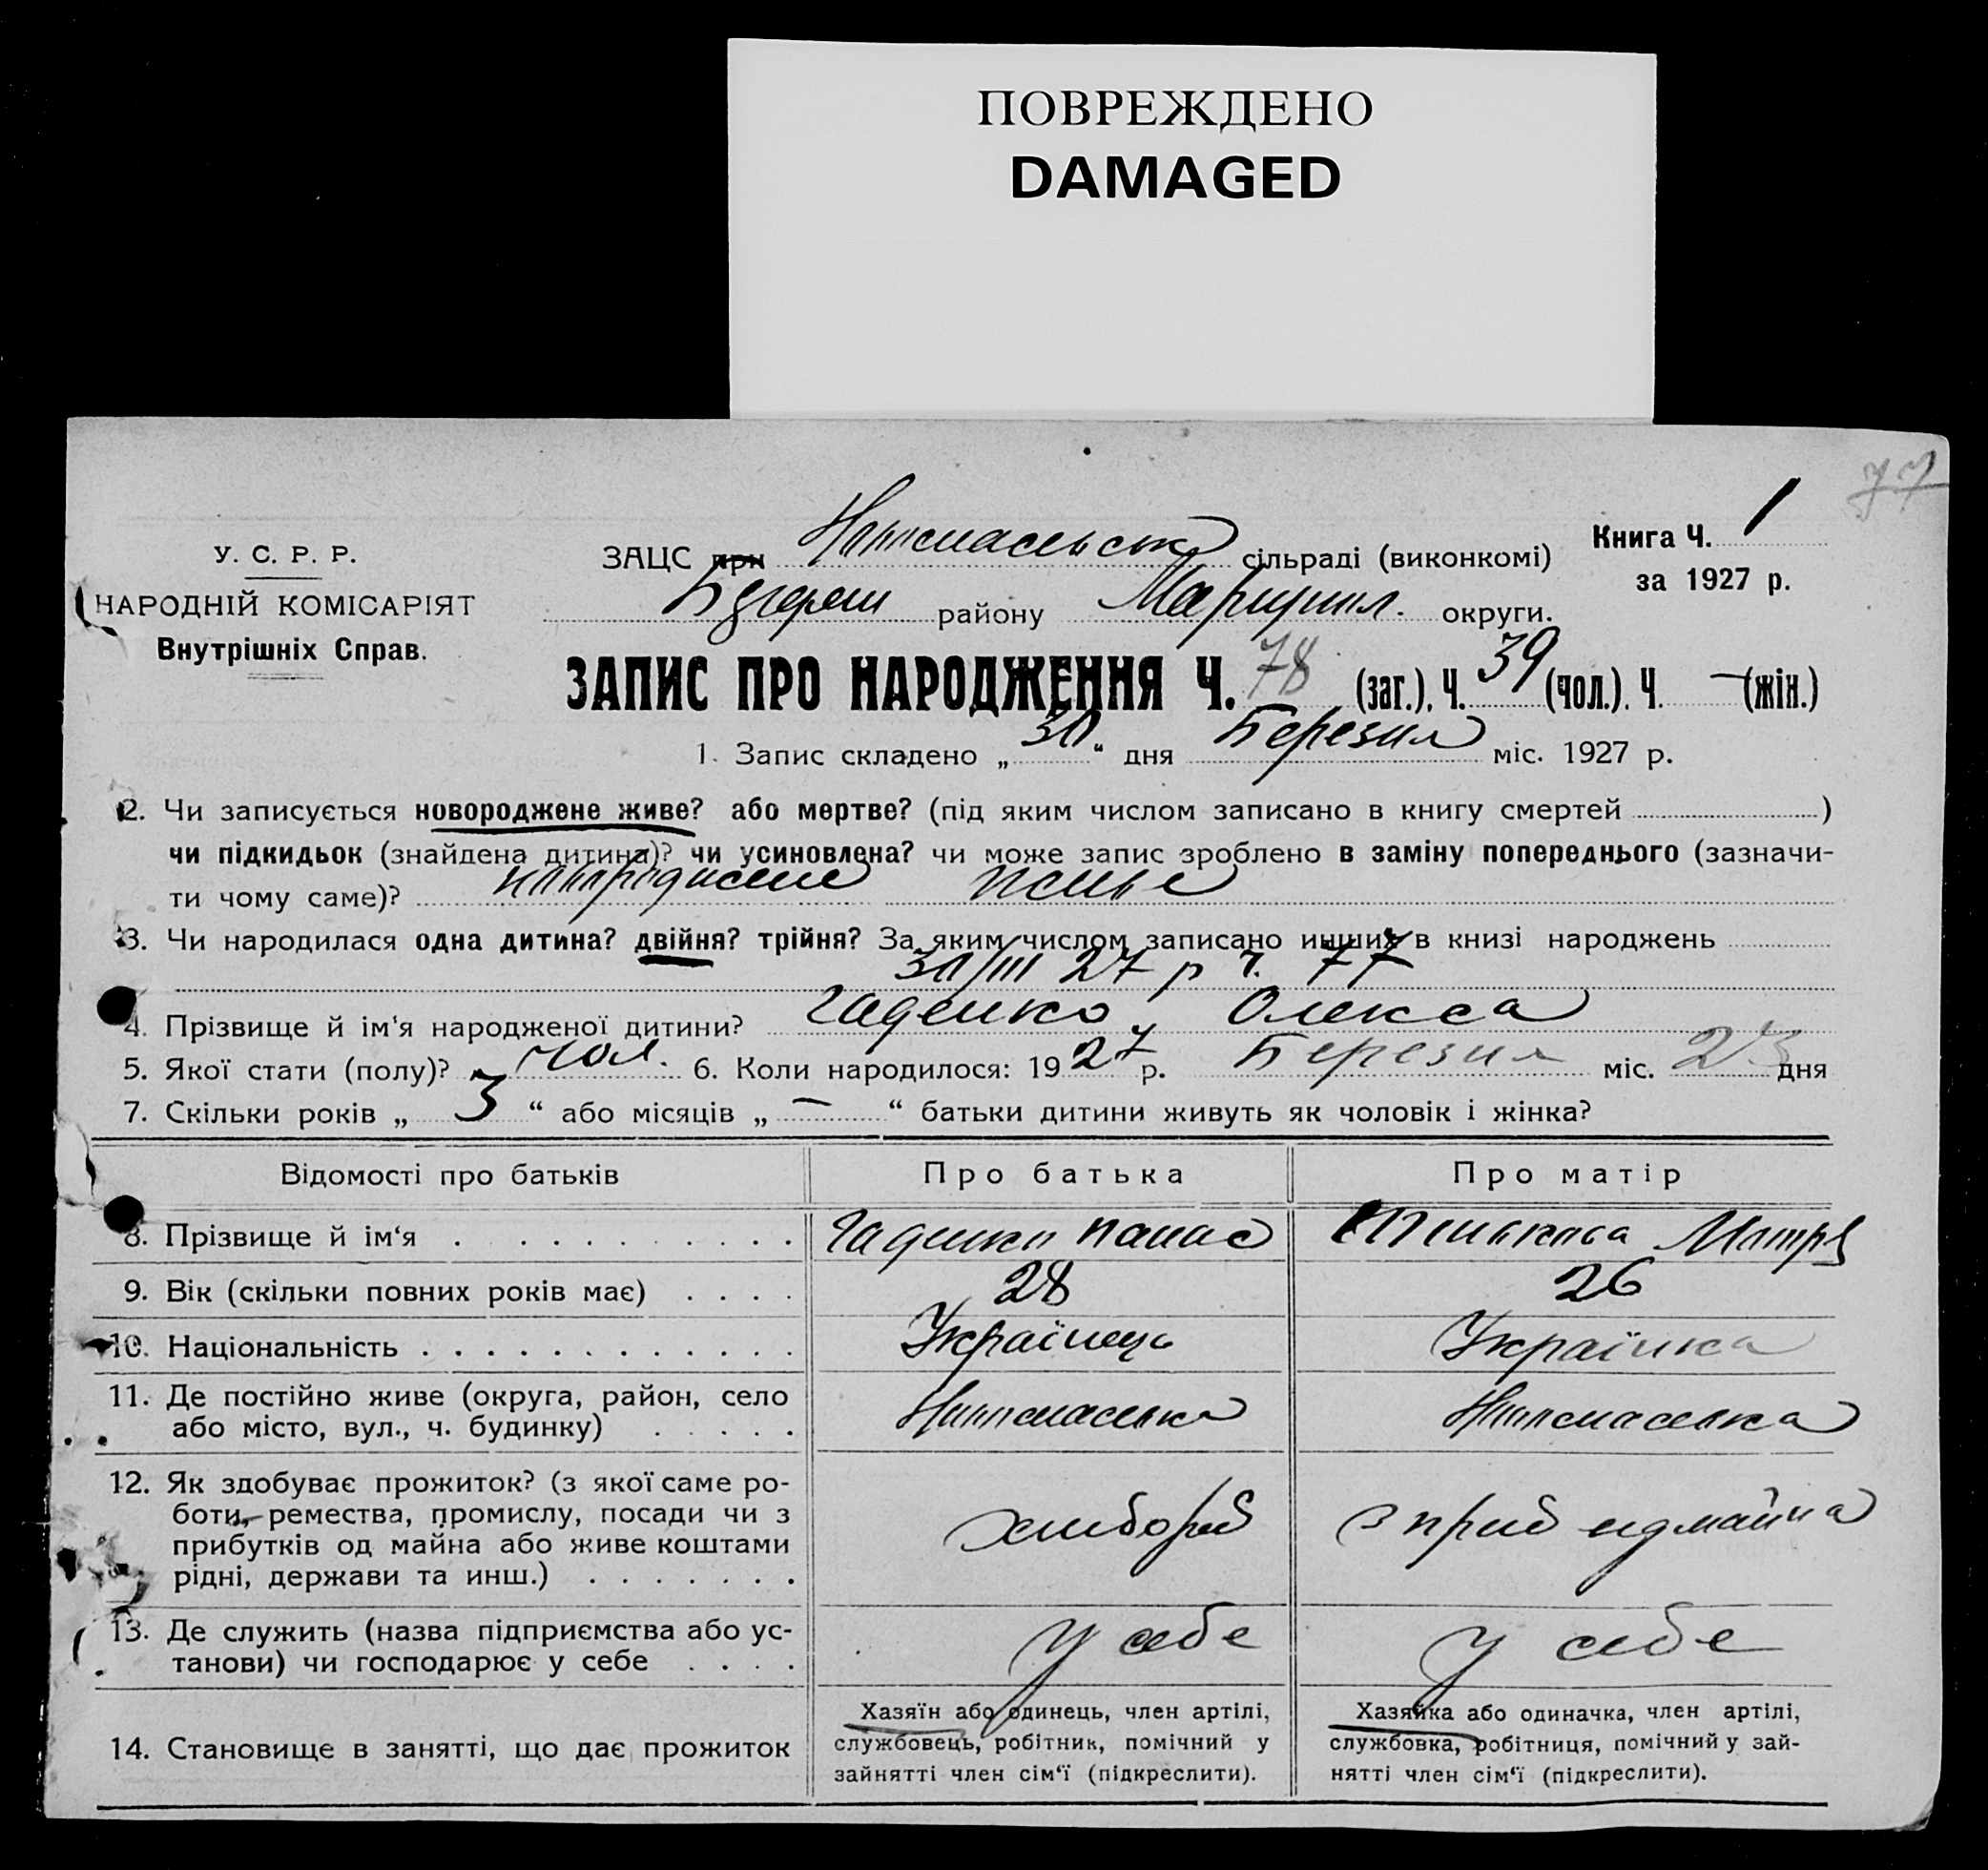 ПОВРЕЖДЕНО
DAMAGED
77
У. С. Р. Р.
НАРОДНІЙ КОМІСАРІЯТ
Внутрішніх Справ.
ЗАЦС при сільраді (виконкомі)
Книга Ч. 1
за 1927 р.
району Маріупіл. округи.
ЗАПИС ПРО НАРОДЖЕННЯ Ч. 78 (заг.). Ч. 39 (чол.). Ч. — (жін.)
1. Запис складено „ 30 “ дня Березня міс. 1927 р.
2. Чи записується новороджене живе? або мертве? (під яким числом записано в книгу смертей )
чи підкидьок (знайдена дитина)? чи усиновлена? чи може запис зроблено в заміну попереднього (зазначи-
ти чому саме)? новороджене живе
3. Чи народилася одна дитина? двійня? трійня? За яким числом записано инших в книзі народжень
30/III 27 р ч. 77
4. Прізвище й ім'я народженої дитини? Гаденко Олекса
5. Якої стати (полу)? чол. 6. Коли народилося: 1927 р. Березня міс. 23 дня
7. Скільки років „ 3 “ або місяців „ — “ батьки дитини живуть як чоловік і жінка?
Відомості про батьків Про батька Про матір
8. Прізвище й ім'я . . . . . . . . . . Гаденко Панас
9. Вік (скільки повних років має) . . . . 28 26
10. Національність . . . . . . . . . . . . . Українець Українка
11. Де постійно живе (округа, район, село
або місто, вул., ч. будинку) . . . . .
12. Як здобуває прожиток? (з якої саме ро-
боти, ремества, промислу, посади чи з
прибутків од майна або живе коштами
рідні, держави та инш.) . . . . . . .
хлибороб з приб од майна
13. Де служить (назва підприємства або ус-
танови) чи господарює у себе . . . .
у себе у себе
14. Становище в занятті, що дає прожиток
Хазяїн або одинець, член артілі,
службовець, робітник, помічний у
зайнятті член сім'ї (підкреслити).
Хазяйка або одиначка, член артілі,
службовка, робітниця, помічний у зай-
нятті член сім'ї (підкреслити).